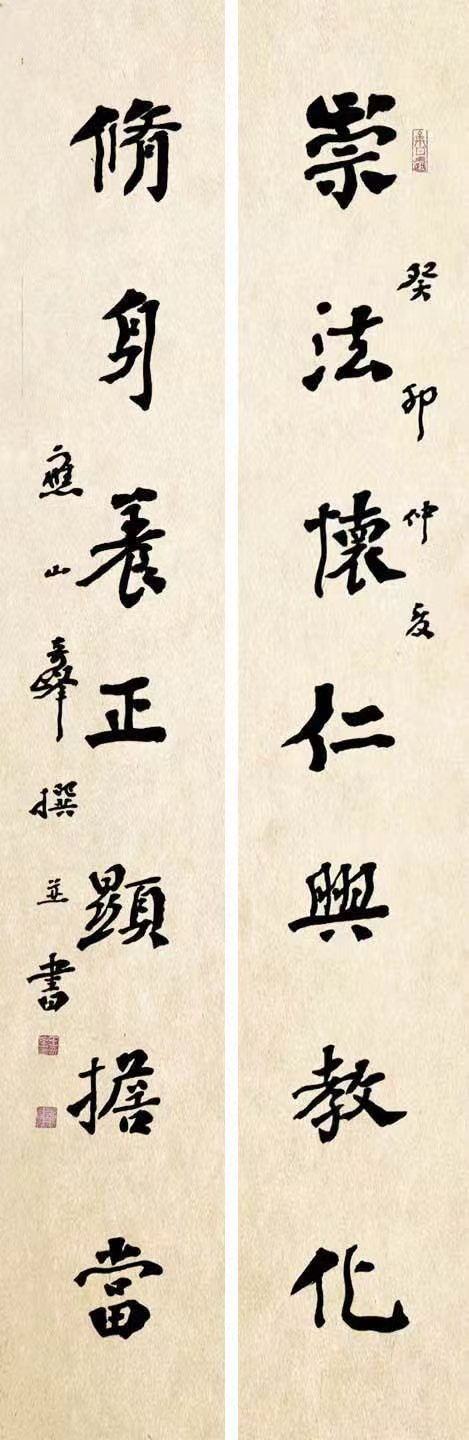 癸卯仲夏
崇法懷仁興教化
脩身養正顯擔當
應山奇峰撰並書